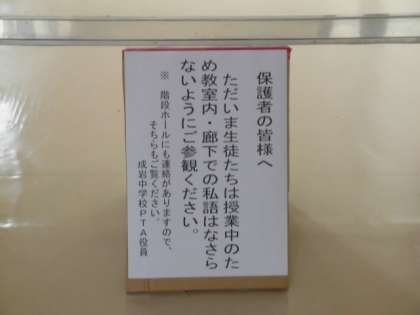 保護者の皆様へ
ただいま生徒たちは授業中のた
め教室内・廊下での私語はなさら
ないようにご参観ください。
※ 階段ホールにも連絡がありますので、
そちらもご覧ください。
成岩中学校PTA役員